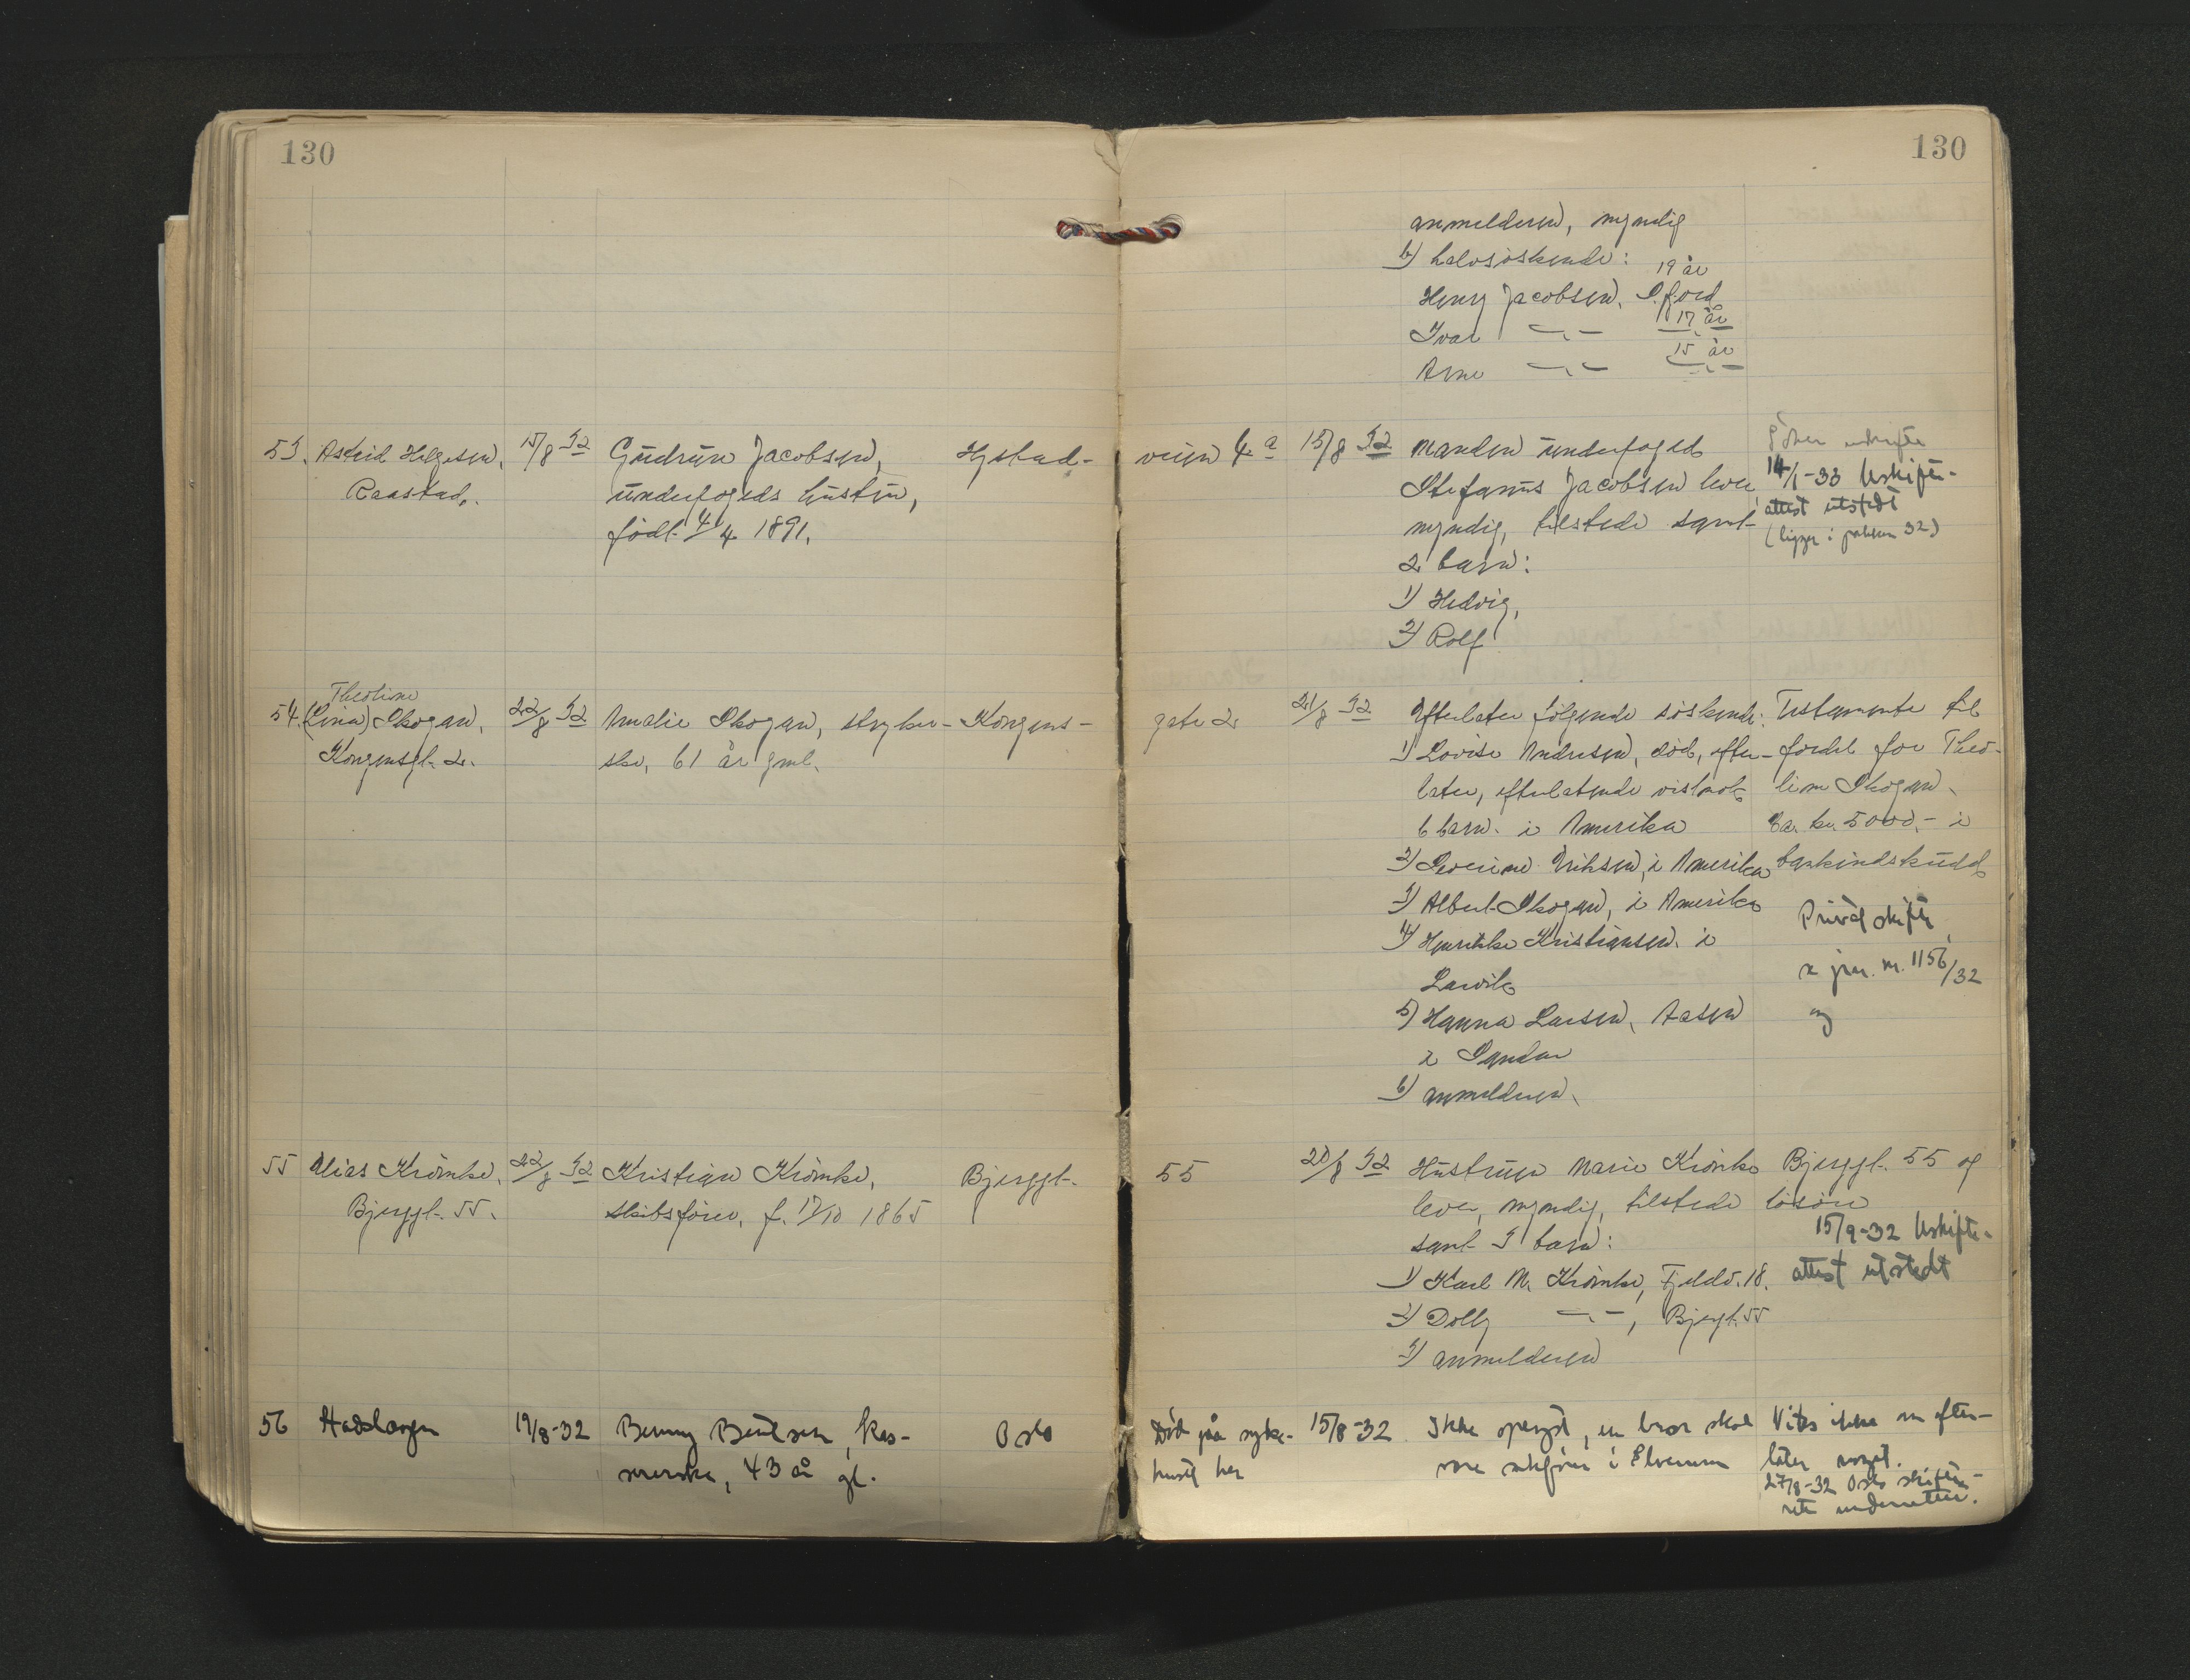 130
130
anmelderen, myndig
b) halvsøskende:
19 år
Henry Jacobsen, S.fjord
17 år
Ivar —"— —"—
15 år
Arne —"— —"—
53. Astrid Helgesen, 15/8 32 Gudrun Jacobsen, Hystad- veien 4a 15/8 32 Manden underfoged
Raastad. underfogeds hustru, Stefanus Jacobsen lever,
født 4/4 1891. myndig, tilstede samt
2 barn:
1) Hedvig,
2) Rolf
14/1-33 Uskifte-
attest utstedt
(ligger i pakken 32)
Theoline
54. (Lina) Skogan, 22/8 32 Amalie Skogan, stryker- Kongens- gate 2 21/8 32 Efterlater følgende søskende: Testamente til
Kongensgt. 2. ske, 61 år gml. 1) Lovise Andresen, død, efter- fordel for Theo-
later, efterlatende vistnok line Skogan.
6 barn i Amerika Ca. kr. 5000.- i
2) Severine Eriksen, i Amerika bankindskudd
3) Albert Skogan, i Amerika
Privat skifte,
4) Henrikke Kristiansen i
Larvik
jnr. nr. 1156/32
5) Hanna Larsen, Aasen
i Sandar
6) anmelderen.
55 Elias Krömke, 22/8 32 Kristian Krömke, Bjerggt. 55 20/8 32 Hustruen Marie Krömke Bjerggt. 55 og
Bjerggt. 55. skibsfører, f. 17/10 1865 lever, myndig, tilstede løsøre
samt 3 barn:
15/9-32 Uskifte-
attest utstedt
1) Karl M. Krömke, Fjeldv. 18.
2) Dolly —"—, Bjerggt. 55
3) anmelderen
56 19/8-32 Benny Bentsen, kas- Oslo Død på syke- 15/8-32 Ikke oplyst, en bror skal Vites ikke om efter-
sererske, 43 år gl. huset her være i Elverum later noget.
27/8-32 Oslo skifte-
rett underrettet.